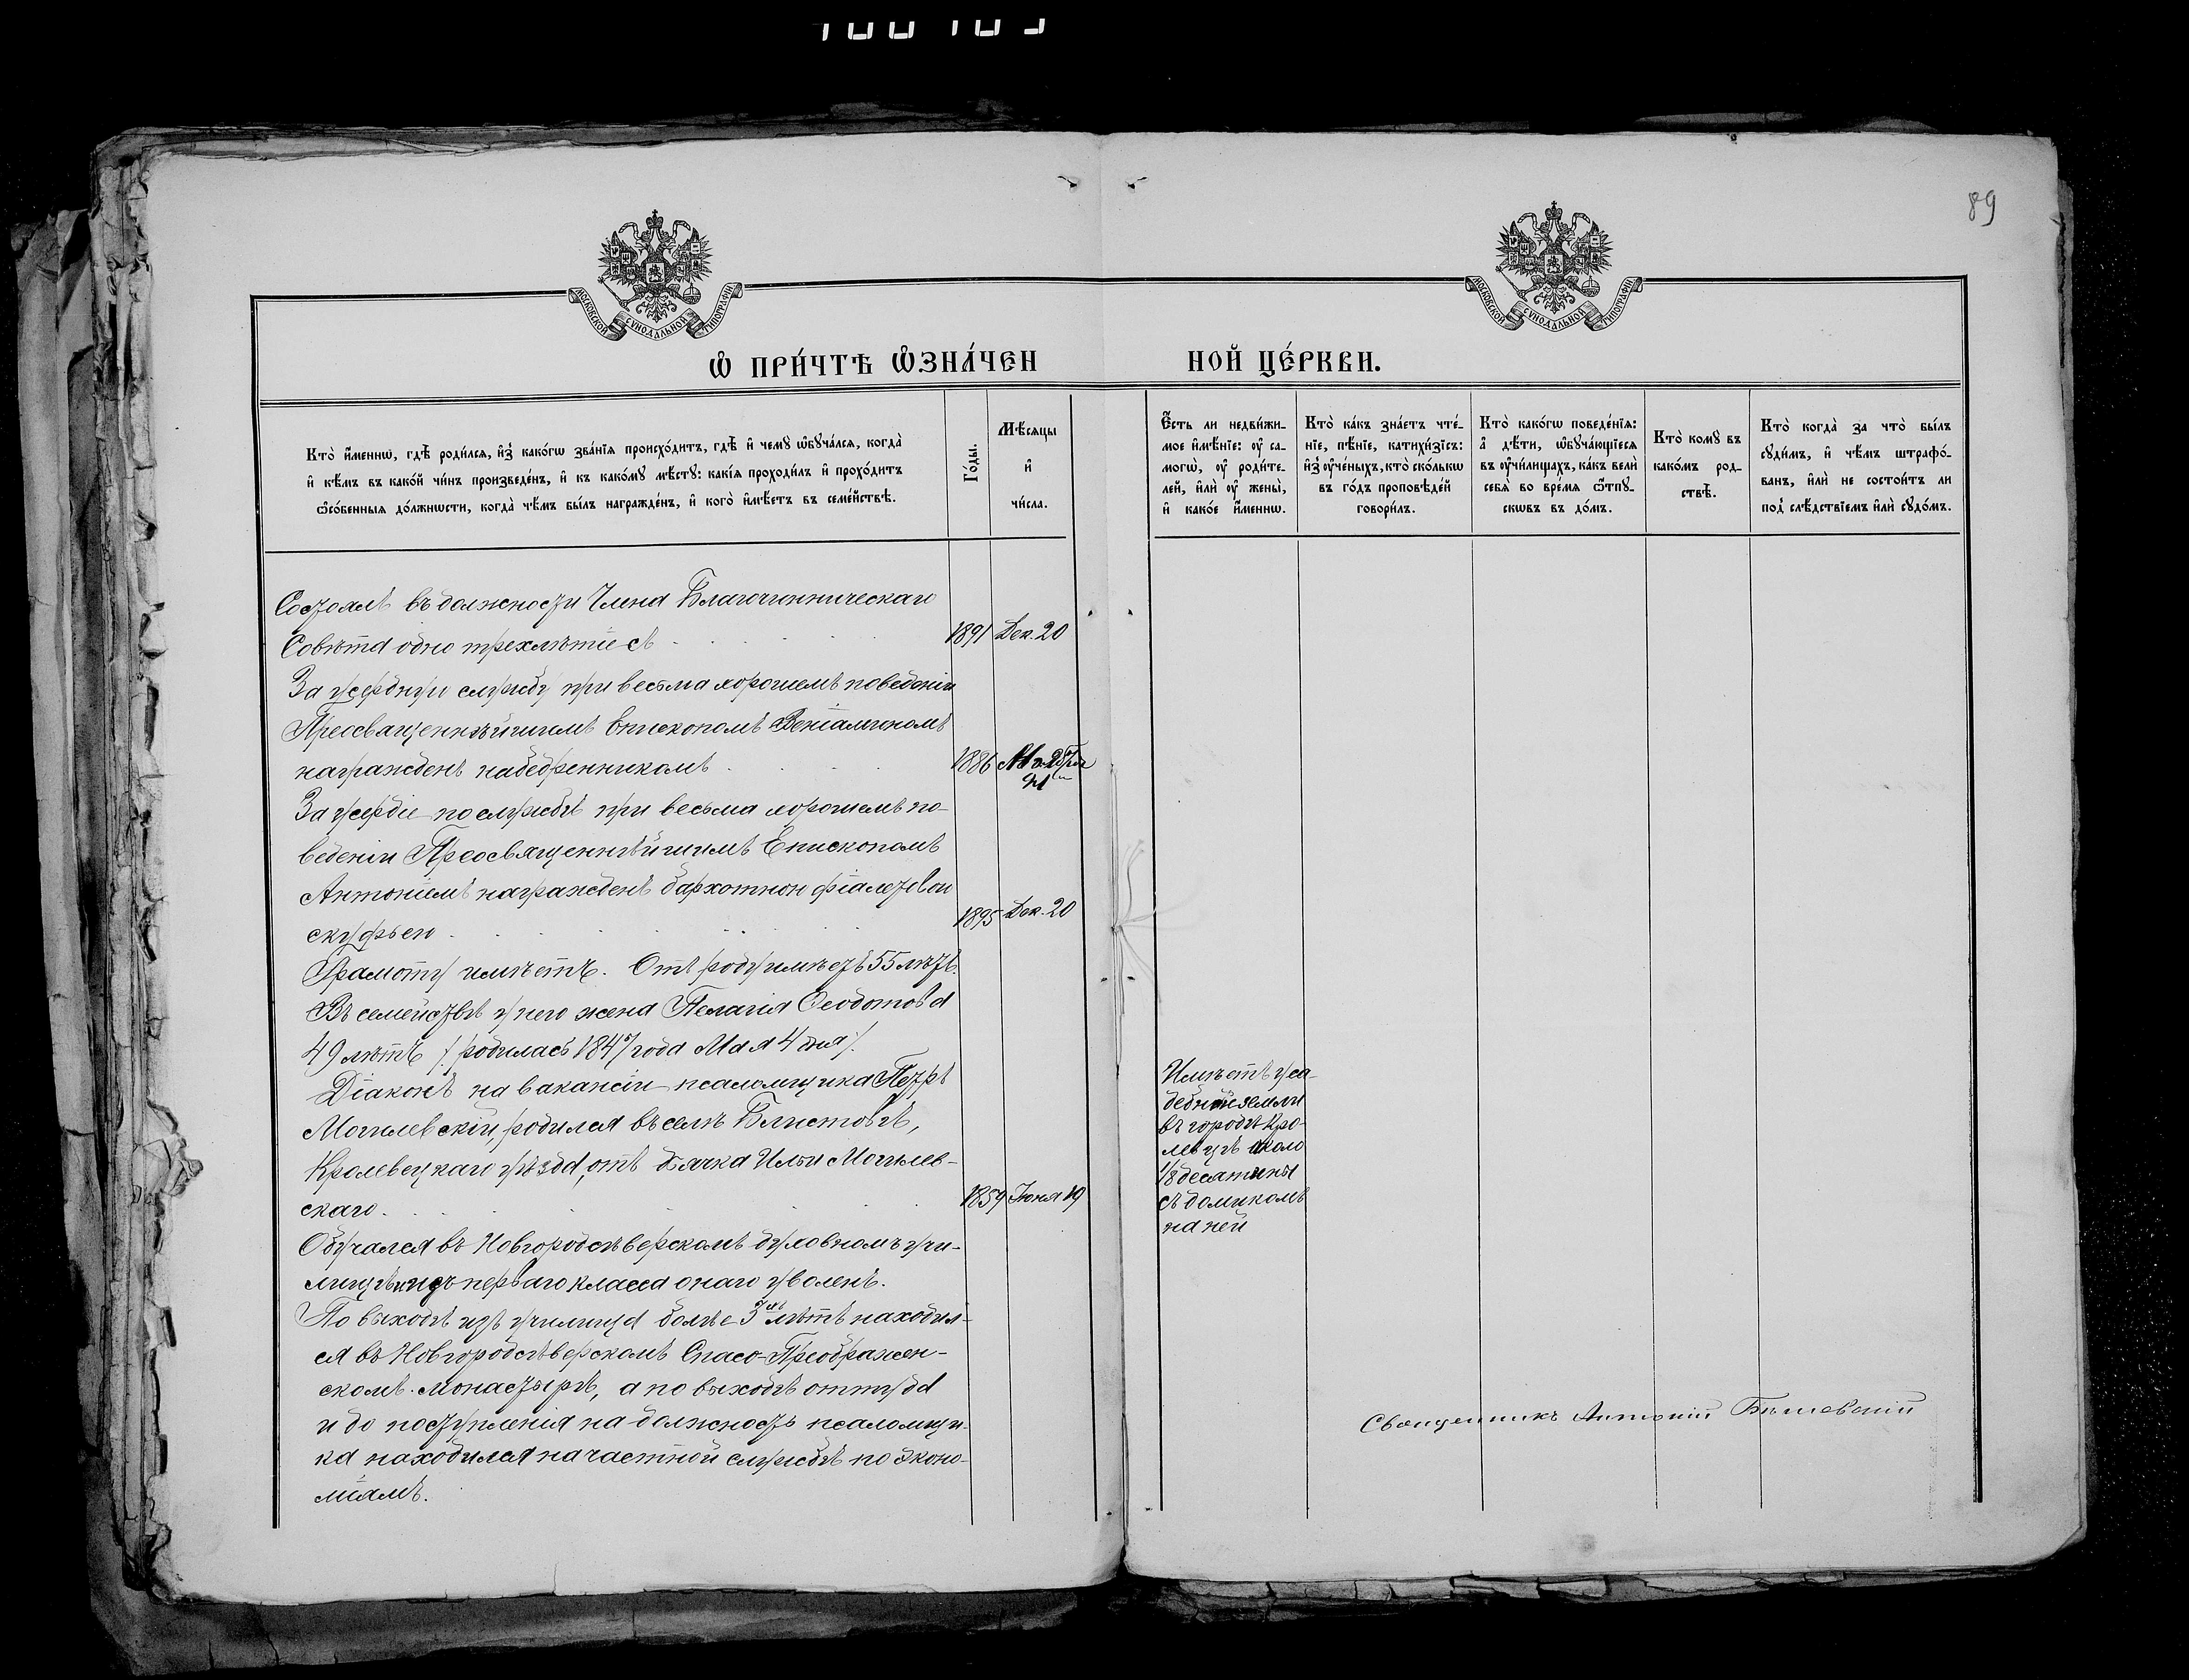 89
МОСКОВСКОЙ СѴНОДАЛЬНОЙ ТИПОГРАФІИ
МОСКОВСКОЙ СѴНОДАЛЬНОЙ ТИПОГРАФІИ
Ѡ҆ ПРИ́ЧТѢ Ѡ҆ЗНА́ЧЕН НОЙ ЦЕ́РКВИ.
Кто̀ и҆́меннѡ, гдѣ̀ роди́лсѧ, и҆з̾ како́гѡ зва́нїѧ происхо́дитъ, гдѣ̀ и҆ чемꙋ̀ ѡ҆бꙋча́лсѧ, когда̀
и҆ кѣ́мъ въ како́й чи́нъ произведе́нъ, и҆ къ како́мꙋ мѣ́стꙋ: какі́ѧ проходи́лъ и҆ прохо́дитъ
ѻ҆со́бенныѧ до́лжнѡсти, когда̀ чѣ́мъ бы́лъ награжде́нъ, и҆ кого̀ и҆мѣ́етъ въ семе́йствѣ.
Го́ды.
Мѣ́сѧцы
и҆
чи́сла.
Є҆́сть ли недви́жи-
мое и҆мѣ́нїе: оу҆ са-
могѡ̀, оу҆ роди́те-
лей, и҆лѝ оу҆ жены̀,
и҆ како́е и҆́меннѡ.
Кто̀ ка́къ зна́етъ чте́-
нїе, пѣ́нїе, катихи́зїсъ:
и҆з̾ оу҆че́ныхъ, кто̀ ско́лькѡ
въ го́дъ проповѣ́дей
говори́лъ.
Кто̀ како́гѡ поведе́нїѧ:
а҆ дѣ́ти, ѡ҆бꙋча́ющїесѧ
въ оу҆чи́лищахъ, ка́къ велѝ
себѧ̀ во вре́мѧ ѿпꙋ-
скѡвъ въ до́мъ.
Кто̀ комꙋ̀ въ
како́мъ род-
ствѣ̀.
Кто̀ когда̀ за что̀ бы́лъ
сꙋди́мъ, и҆ чѣ́мъ штрафо́-
ванъ, и҆лѝ не состои́тъ ли
под̾ слѣ́дствїемъ и҆лѝ сꙋдо́мъ.
Состоялъ въ должности Члена Благочинническаго
Совѣта одно трехлѣтіе съ 1891 Дек. 20
За усердную службу при весьма хорошемъ поведеніи
Преосвященнѣйшимъ Епископомъ Веніаминомъ
награжденъ набедренникомъ 1886
За усердіе по службѣ при весьма хорошемъ по-
веденіи Преосвященнѣйшимъ Епископомъ
Антоніемъ награжденъ бархотною фіалетовою
скуфьею 1895 Дек. 20
Грамоту имѣетъ. Отъ роду имѣетъ 55 лѣтъ.
Въ семействѣ у него жена Пелагія Ѳеодотова
49 лѣтъ /: родилась 1847 года Мая 4 дня :/.
Діаконъ на вакансіи псаломщика Петръ
Могилевскій, родился въ селѣ Блистовѣ,
Кролевецкаго уѣзда, отъ дьячка Ильи Могилев-
скаго. 1859 Іюня 19
Обучался въ Новгородсѣверскомъ духовномъ учи-
лищѣ и изъ перваго класса онаго уволенъ.
По выходѣ изъ училища болѣе 3хъ лѣтъ находил-
ся въ Новгородсѣверскомъ Спасо-Преображен-
скомъ монастырѣ, а по выходѣ оттуда
и до поступленія на должность псаломщи-
ка находился на частной службѣ по эконо-
міямъ.
Имѣетъ уса-
дебной земли
въ городѣ Кро-
левцѣ около
1/8 десятины
съ домикомъ
на ней
Священникъ Антоній